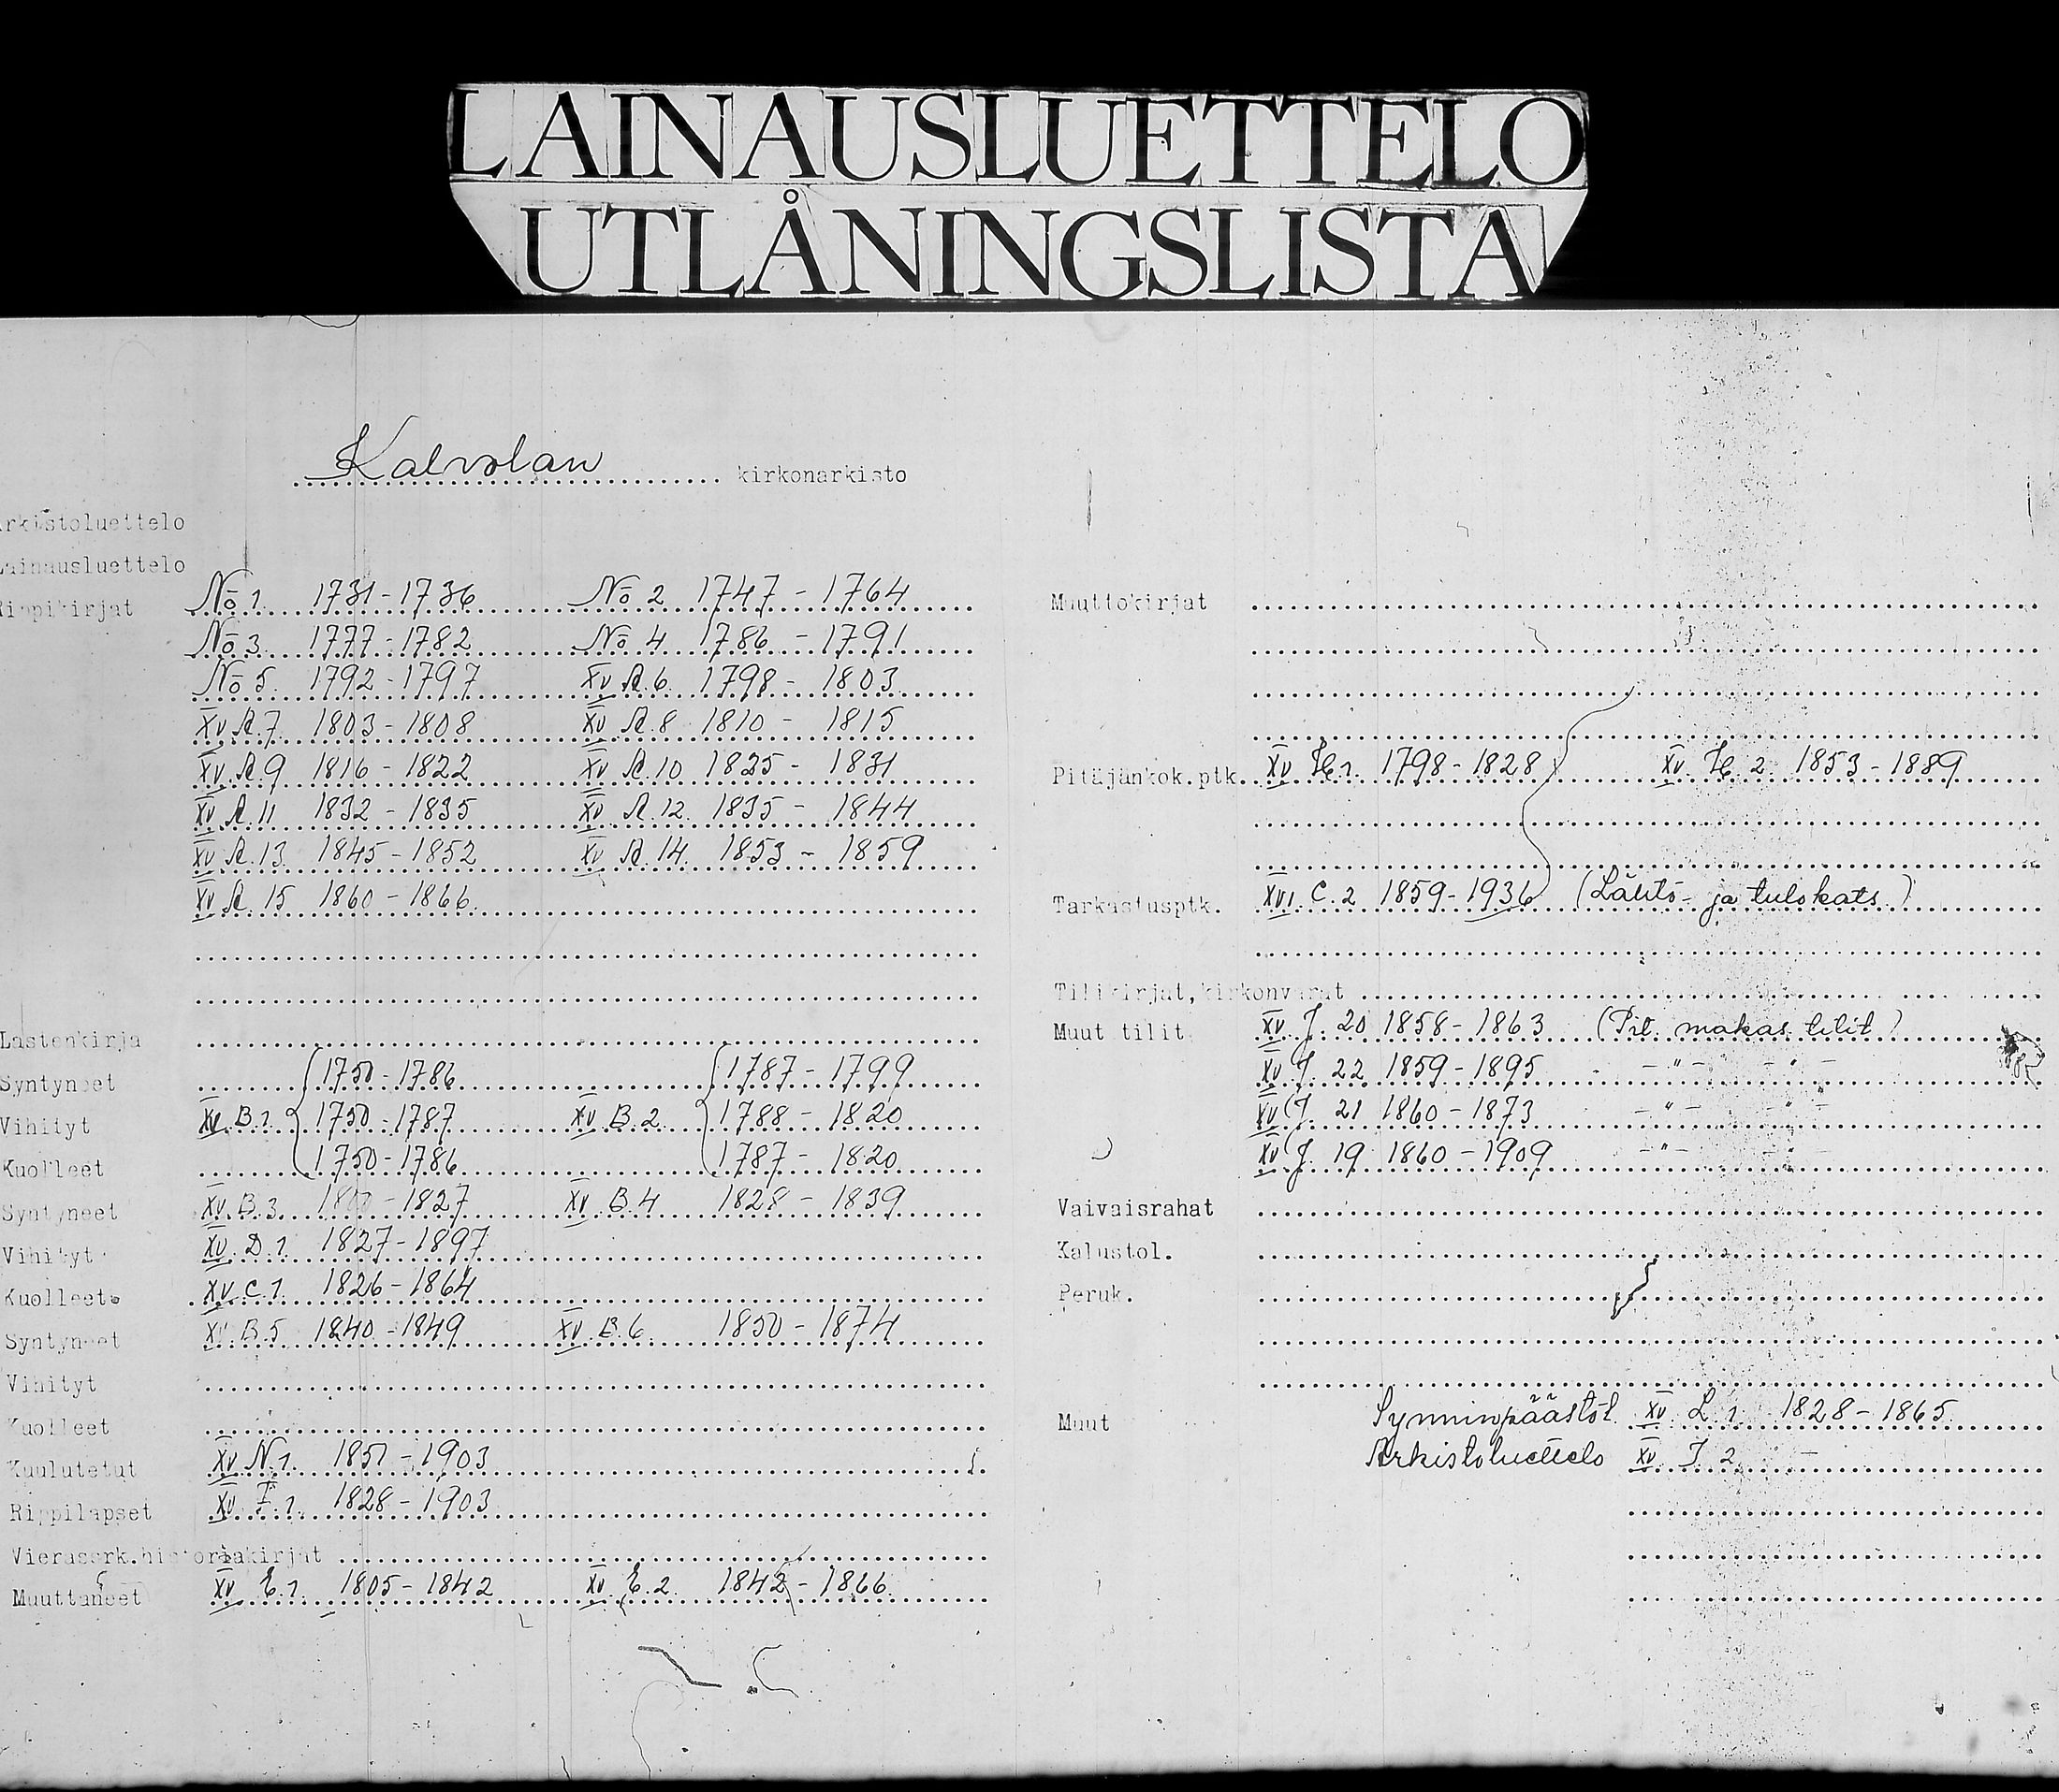 LAINAUSLUETTELO
UTLÅNINGSLISTA
Kalvolan kirkonarkisto
Arkistoluettelo
Lainausluettelo
Rippikirjat No 1. 1731-1736 No 2 1747-1764
No 3. 1777-1782 No 4 1786-1791
No 5. 1792-1797 XV A.6. 1798-1803
XV A.7 1803-1808 XV A.8 1810-1815
XV A.9 1816-1822 XV A.10 1825-1831
XV A.11 1832-1835 XV A.12. 1835-1844
XV A.13. 1845-1852 XV A.14. 1853-1859
XV A.15 1860-1866
Lastenkirja
Syntyneet 1750-1786 1787-1799
Vihityt XV B.1. 1750-1787 XV B.2. 1788-1820
Kuolleet 1750-1786 1787-1820
Syntyneet XV B.3. -1827 XV B.4 1828-1839
Vihityt XV D.1. 1827-1897
Kuolleet XV C.1. 1826-1864
Syntyneet XV B.5 1840-1849 XV B.6. 1850-1874
Vihityt
Kuolleet
Kuulutetut XV N.1. 1851-1903
Rippilapset XV I.1 1828-1903
Vierassrk.historiakirjat
Muuttaneet XV E.1. 1805-1842 XV E.2. 1842-1866
Muuttokirjat
Pitäjänkok.ptk. XV H.1. 1798-1828 XV H.2. 1853-1889
Tarkastusptk. XVI C.2 1859-1936 (Lähtö- ja tulokats.)
Tilikirjat, kirkonvarat
Muut tilit XV J. 20 1858-1863 (Pit. makas. tilit)
XV J. 22 1859-1895 -"- -"-
XV J. 21 1860-1873 -"- -"-
XV J. 19 1860-1909 -"- -"-
Vaivaisrahat
Kalustol.
Peruk.
Muut Synninpäästöl. XV L.1 1828-1865
Arkistoluettelo XV J 2. -